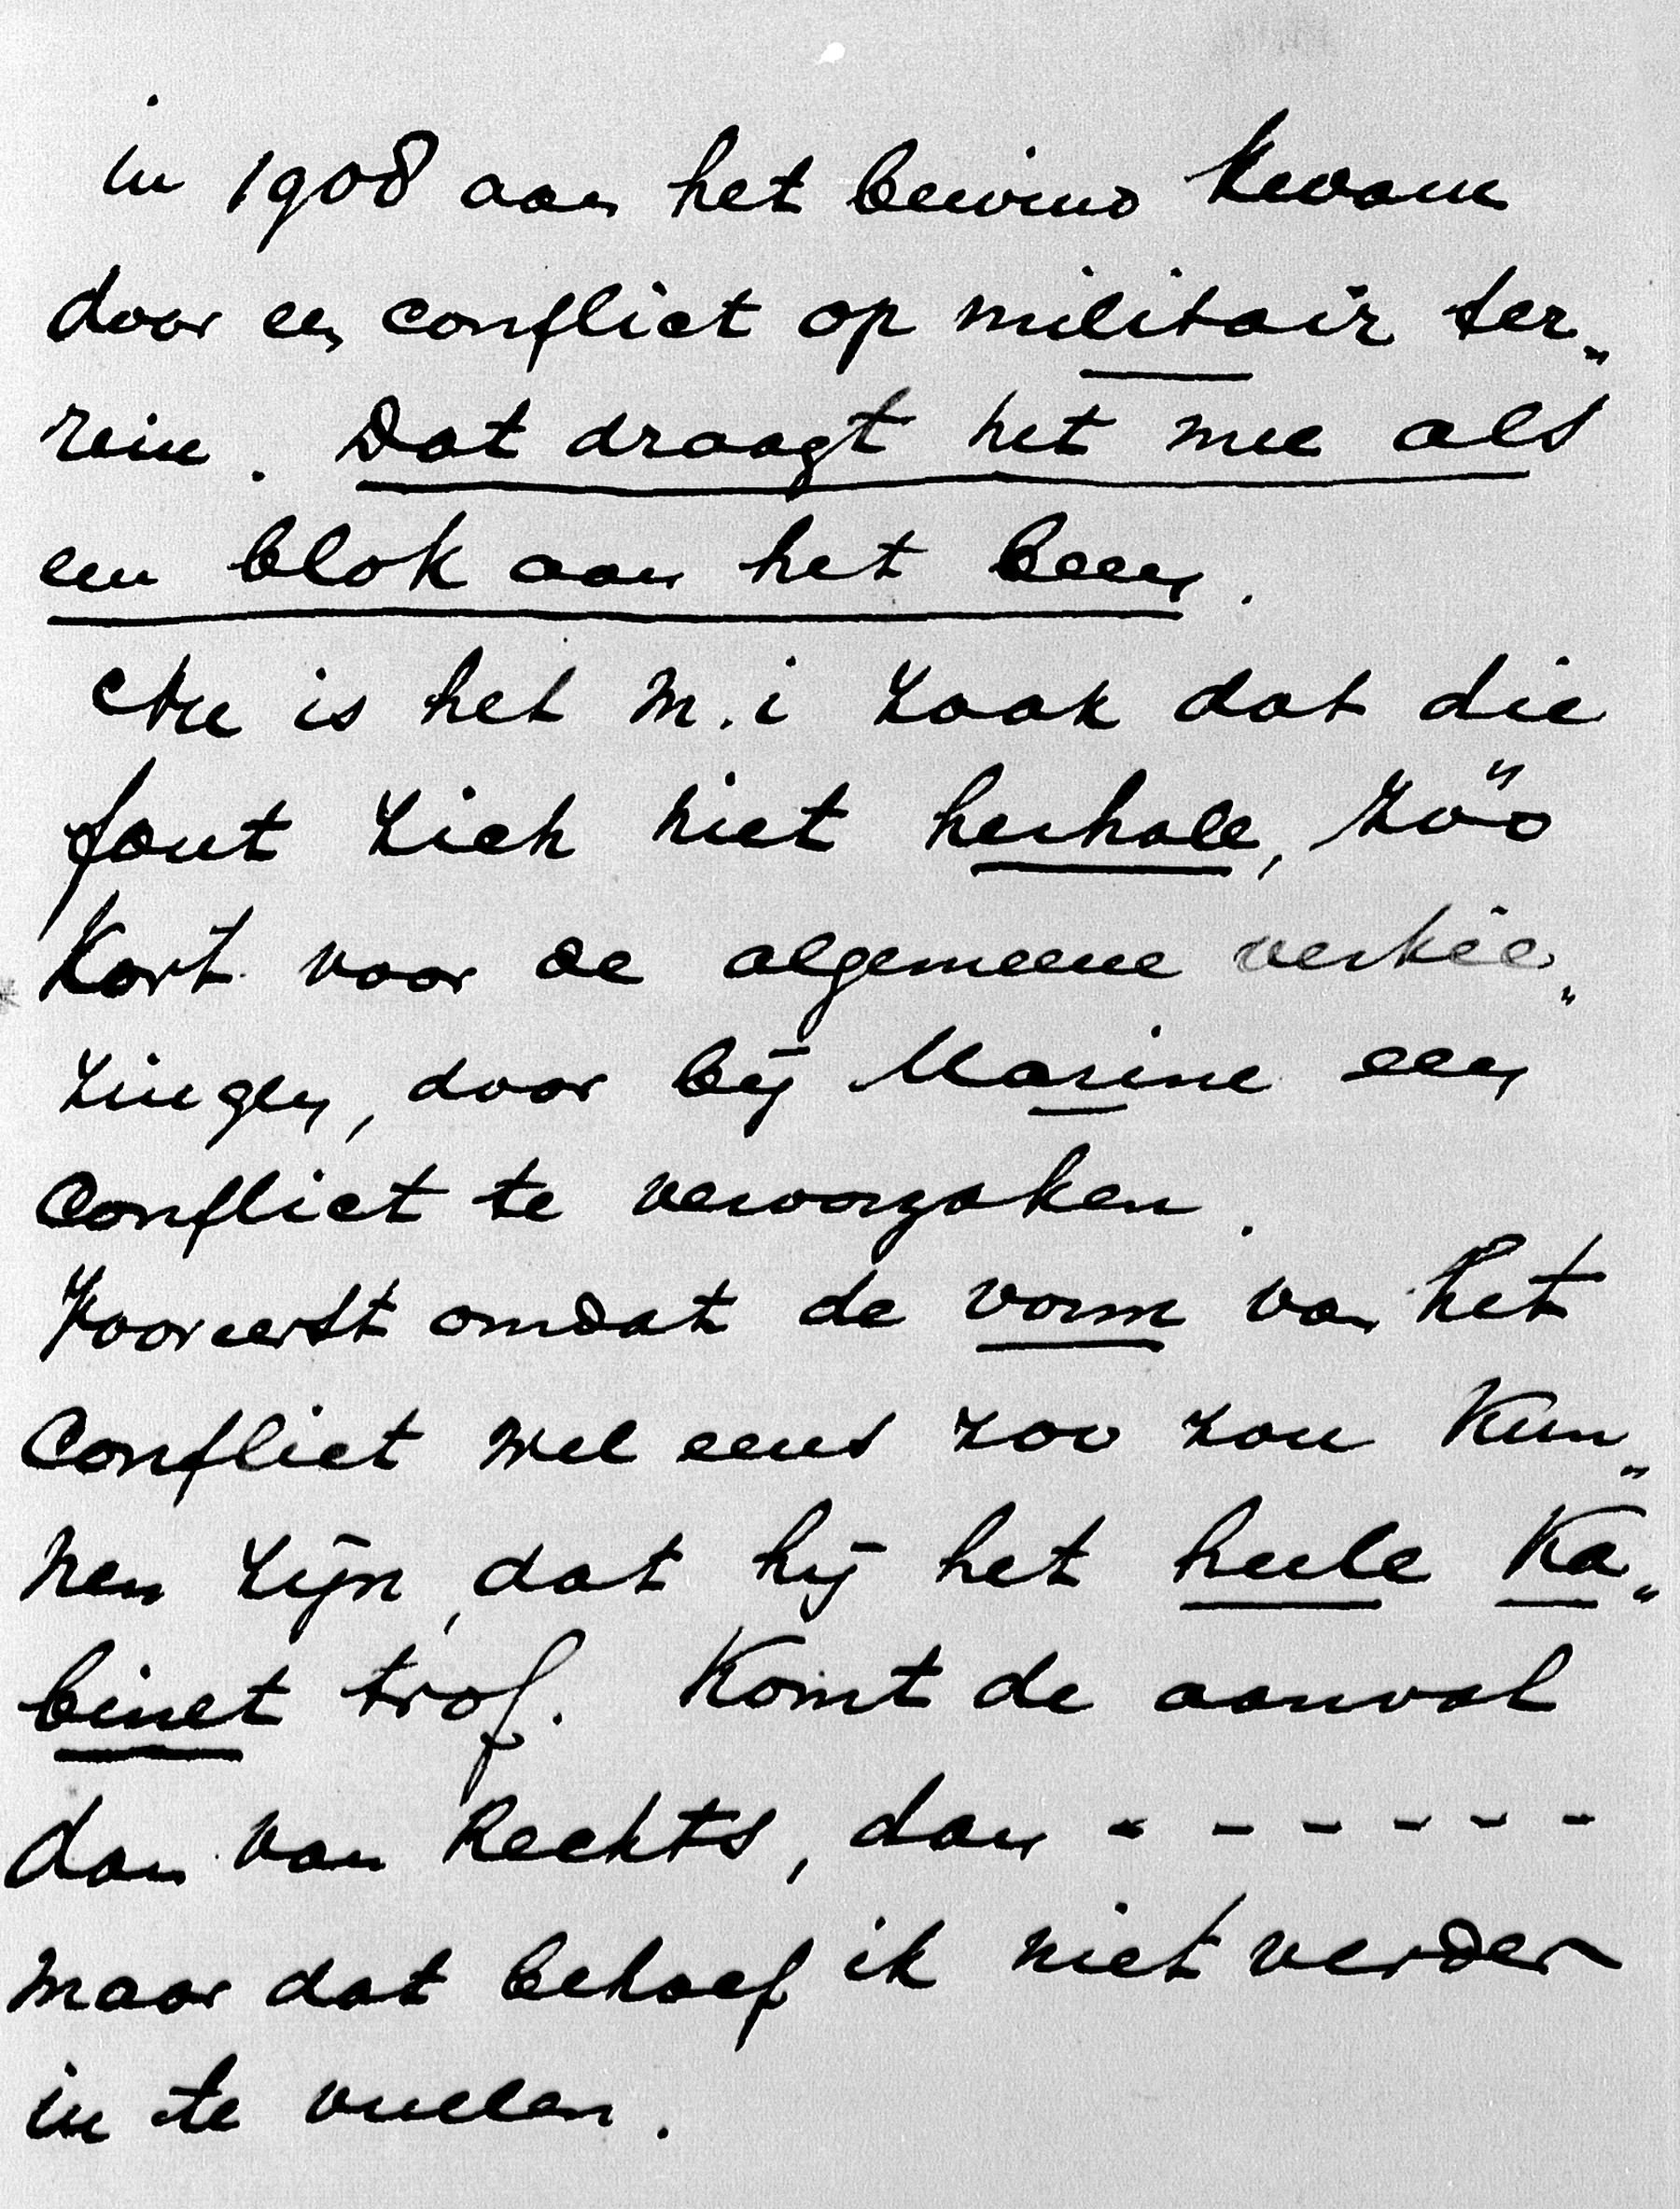 in 1908 aan het bewind kwam
door een conflict op militair ter„
rein. Dat draagt het mee als
een blok aan het been.
Nu is het m.i zaak dat die
fout zich niet herhale, zóó
kort voor de algemeene verkie„
zingen, door bij Marine een
Conflict te veroorzaken.
Vooreerst omdat de vorm van het
Conflict wel eens zoo zou kun„
nen zijn, dat hij het heele Ka„
binet trof. Komt de aanval
dan van Rechts, dan - - - - - -
maar dat behoef ik niet verder
in te vullen.